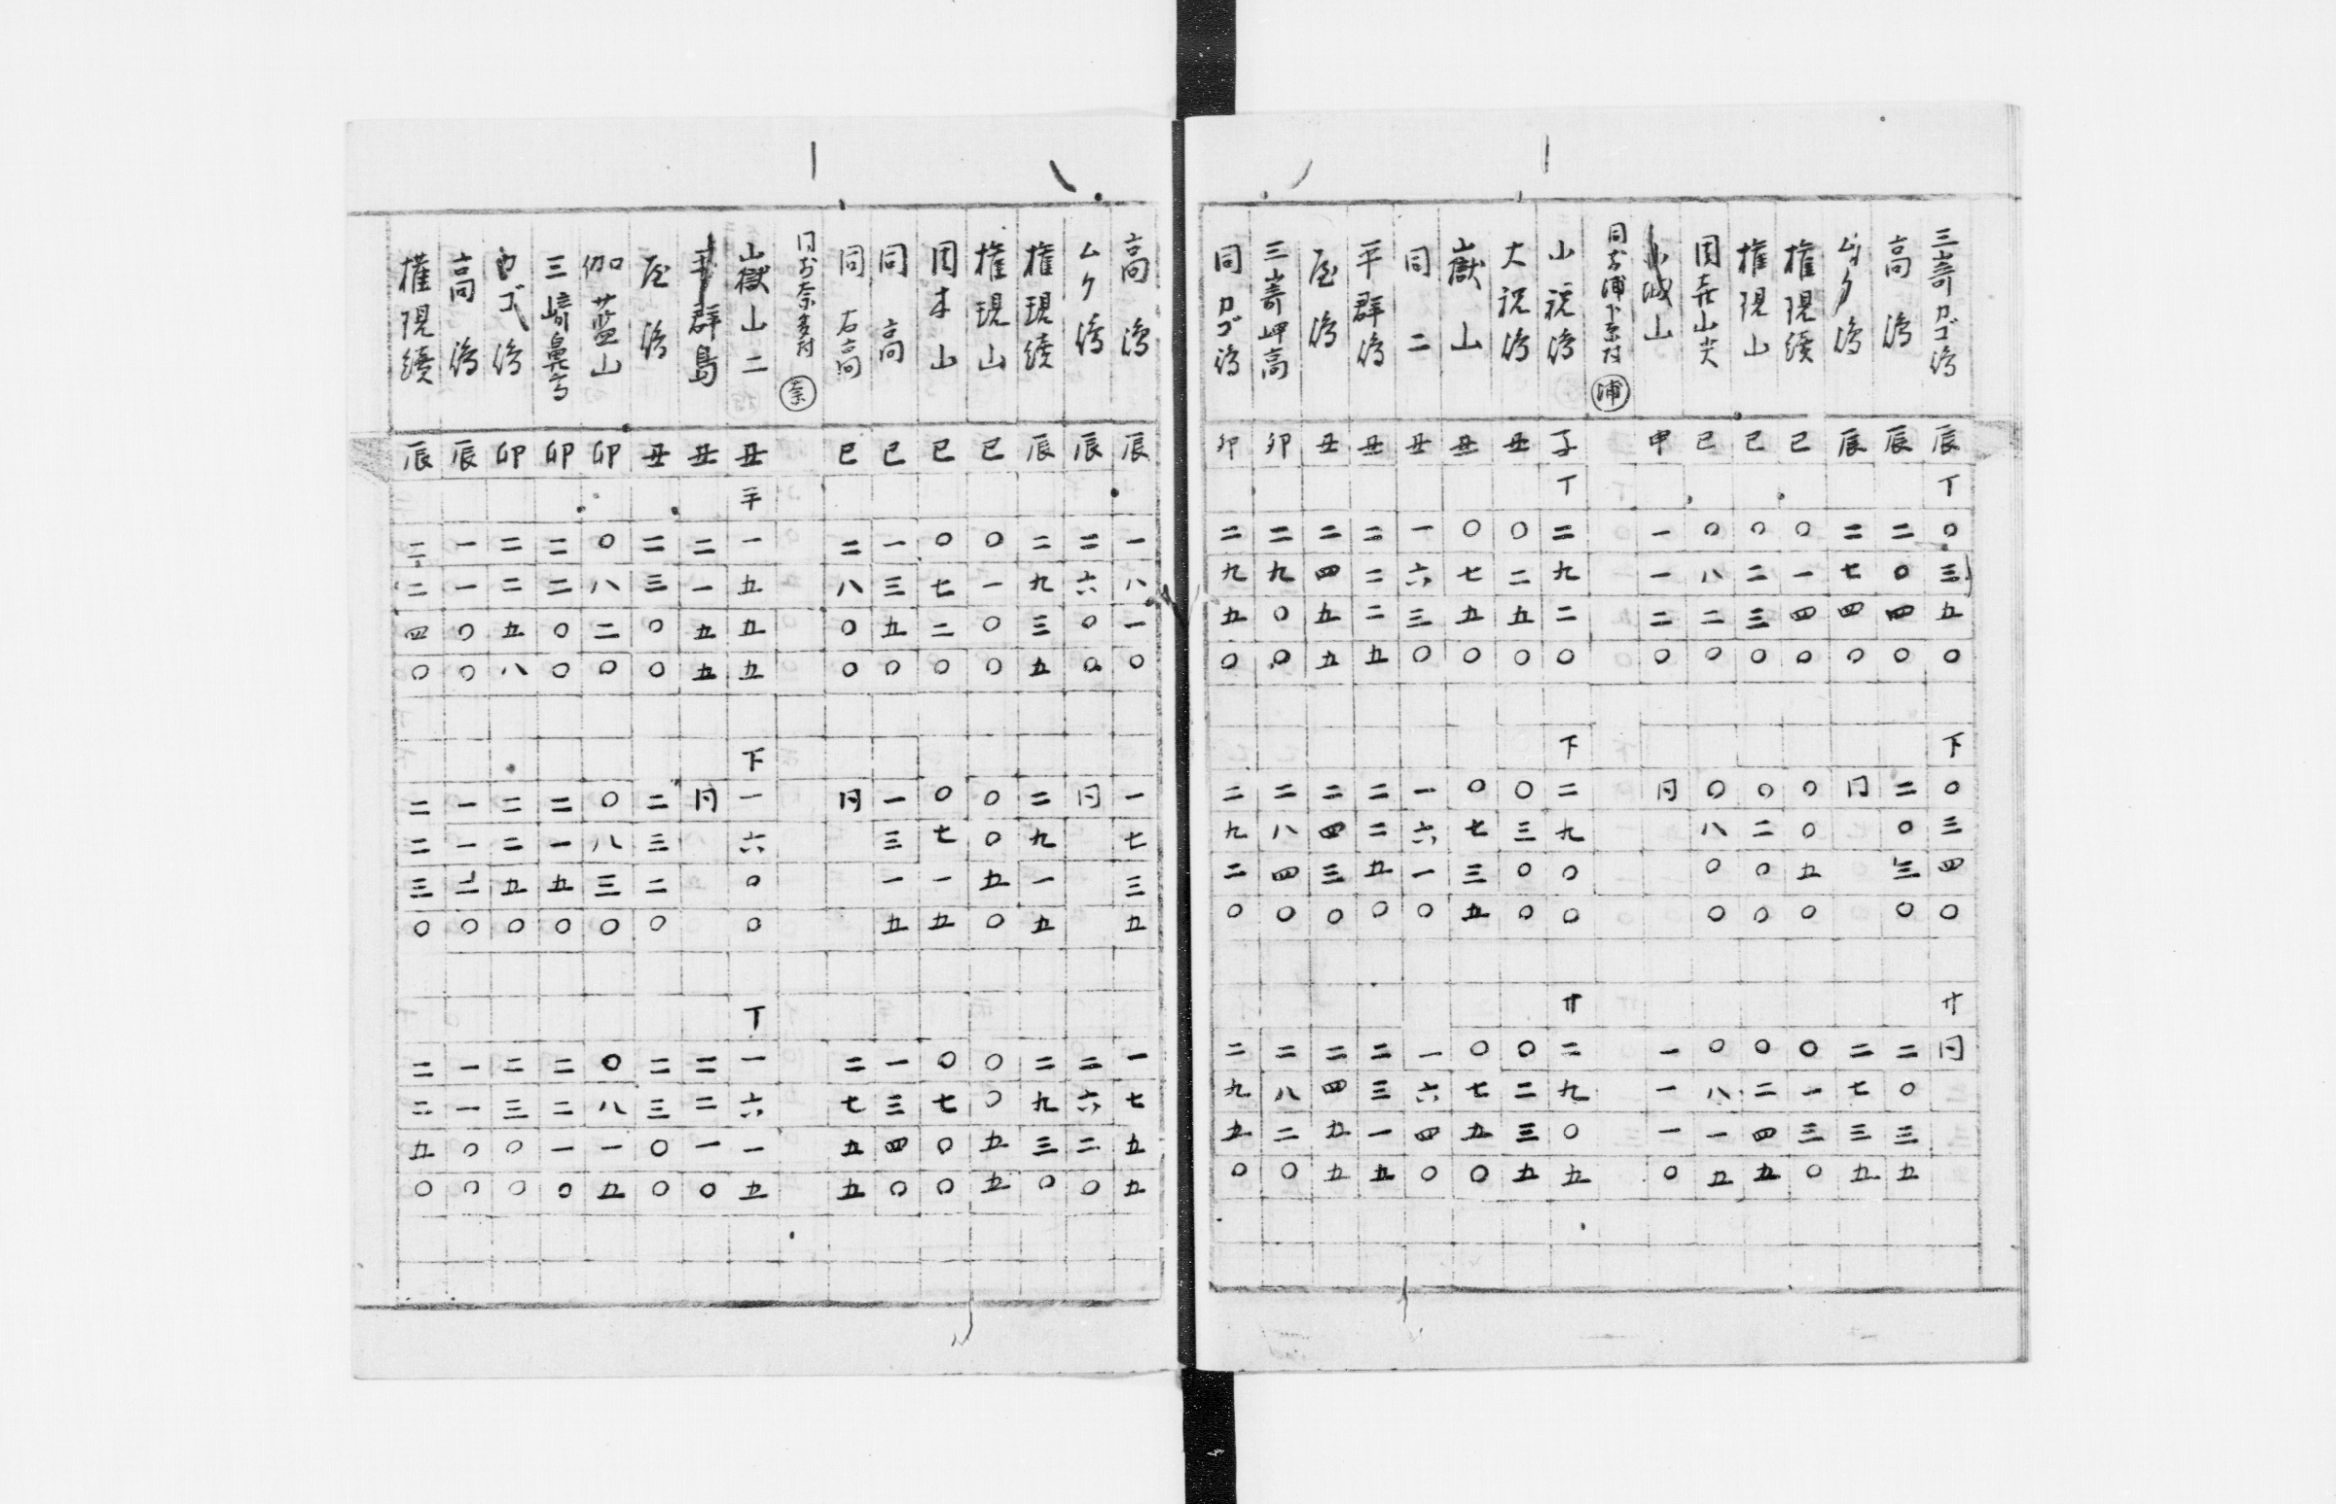 三嵜カゴ嶋 辰 丁 〇三五〇 下 〇三四〇 廾 同
高嶋 辰 二〇四〇 二〇三〇 二〇三五
ムク嶋 辰 二七四〇 同 二七三五
権現続 巳 〇一四〇 〇〇五〇 〇一三〇
権現山 巳 〇二三〇 〇二〇〇 〇二四五
国㐂山尖 巳 〇八二〇 〇八〇〇 〇八一五
城山 申 一一二〇 同 一一一〇
同 浦 村 浦
小祝嶋 子 丁 二九二〇 下 二九〇〇 廾 二九〇五
大祝嶋 丑 〇二五〇 〇三〇〇 〇二三五
嶽山 丑 〇七五〇 〇七三五 〇七五〇
同二 丑 一六三〇 一六一〇 一六四〇
平群嶋 丑 二二二五 二二五〇 二三一五
屋嶋 丑 二四五五 二四三〇 二四五五
三嵜岬高 卯 二九〇〇 二八四〇 二八二〇
同カゴ嶋 卯 二九五〇 二九二〇 二九五〇
高嶋 辰 一八一〇 一七三五 一七五五
ムク嶋 辰 二六〇〇 同 二六二〇
権現続 辰 二九三五 二九一五 二九三〇
権現山 巳 〇一〇〇 〇〇五〇 〇〇五五
国木山 巳 〇七二〇 〇七一五 〇七〇〇
同高 巳 一三五〇 一三一五 一三四〇
同右高 巳 二八〇〇 同 二七五五
同 奈 村 奈
嶽山二 丑 平 一五五五 下 一六〇〇 丁 一六一五
平群島 丑 二一五五 同 二二一〇
屋嶋 丑 二三〇〇 二三二〇 二三〇〇
伽藍山 卯 〇八二〇 〇八三〇 〇八一五
三崎鼻高 卯 二二〇〇 二一五〇 二二一〇
カゴ嶋 卯 二二五八 二二五〇 二三〇〇
高嶋 辰 一一〇〇 一一二〇 一一〇〇
権現続 辰 二二四〇 二二三〇 二二五〇